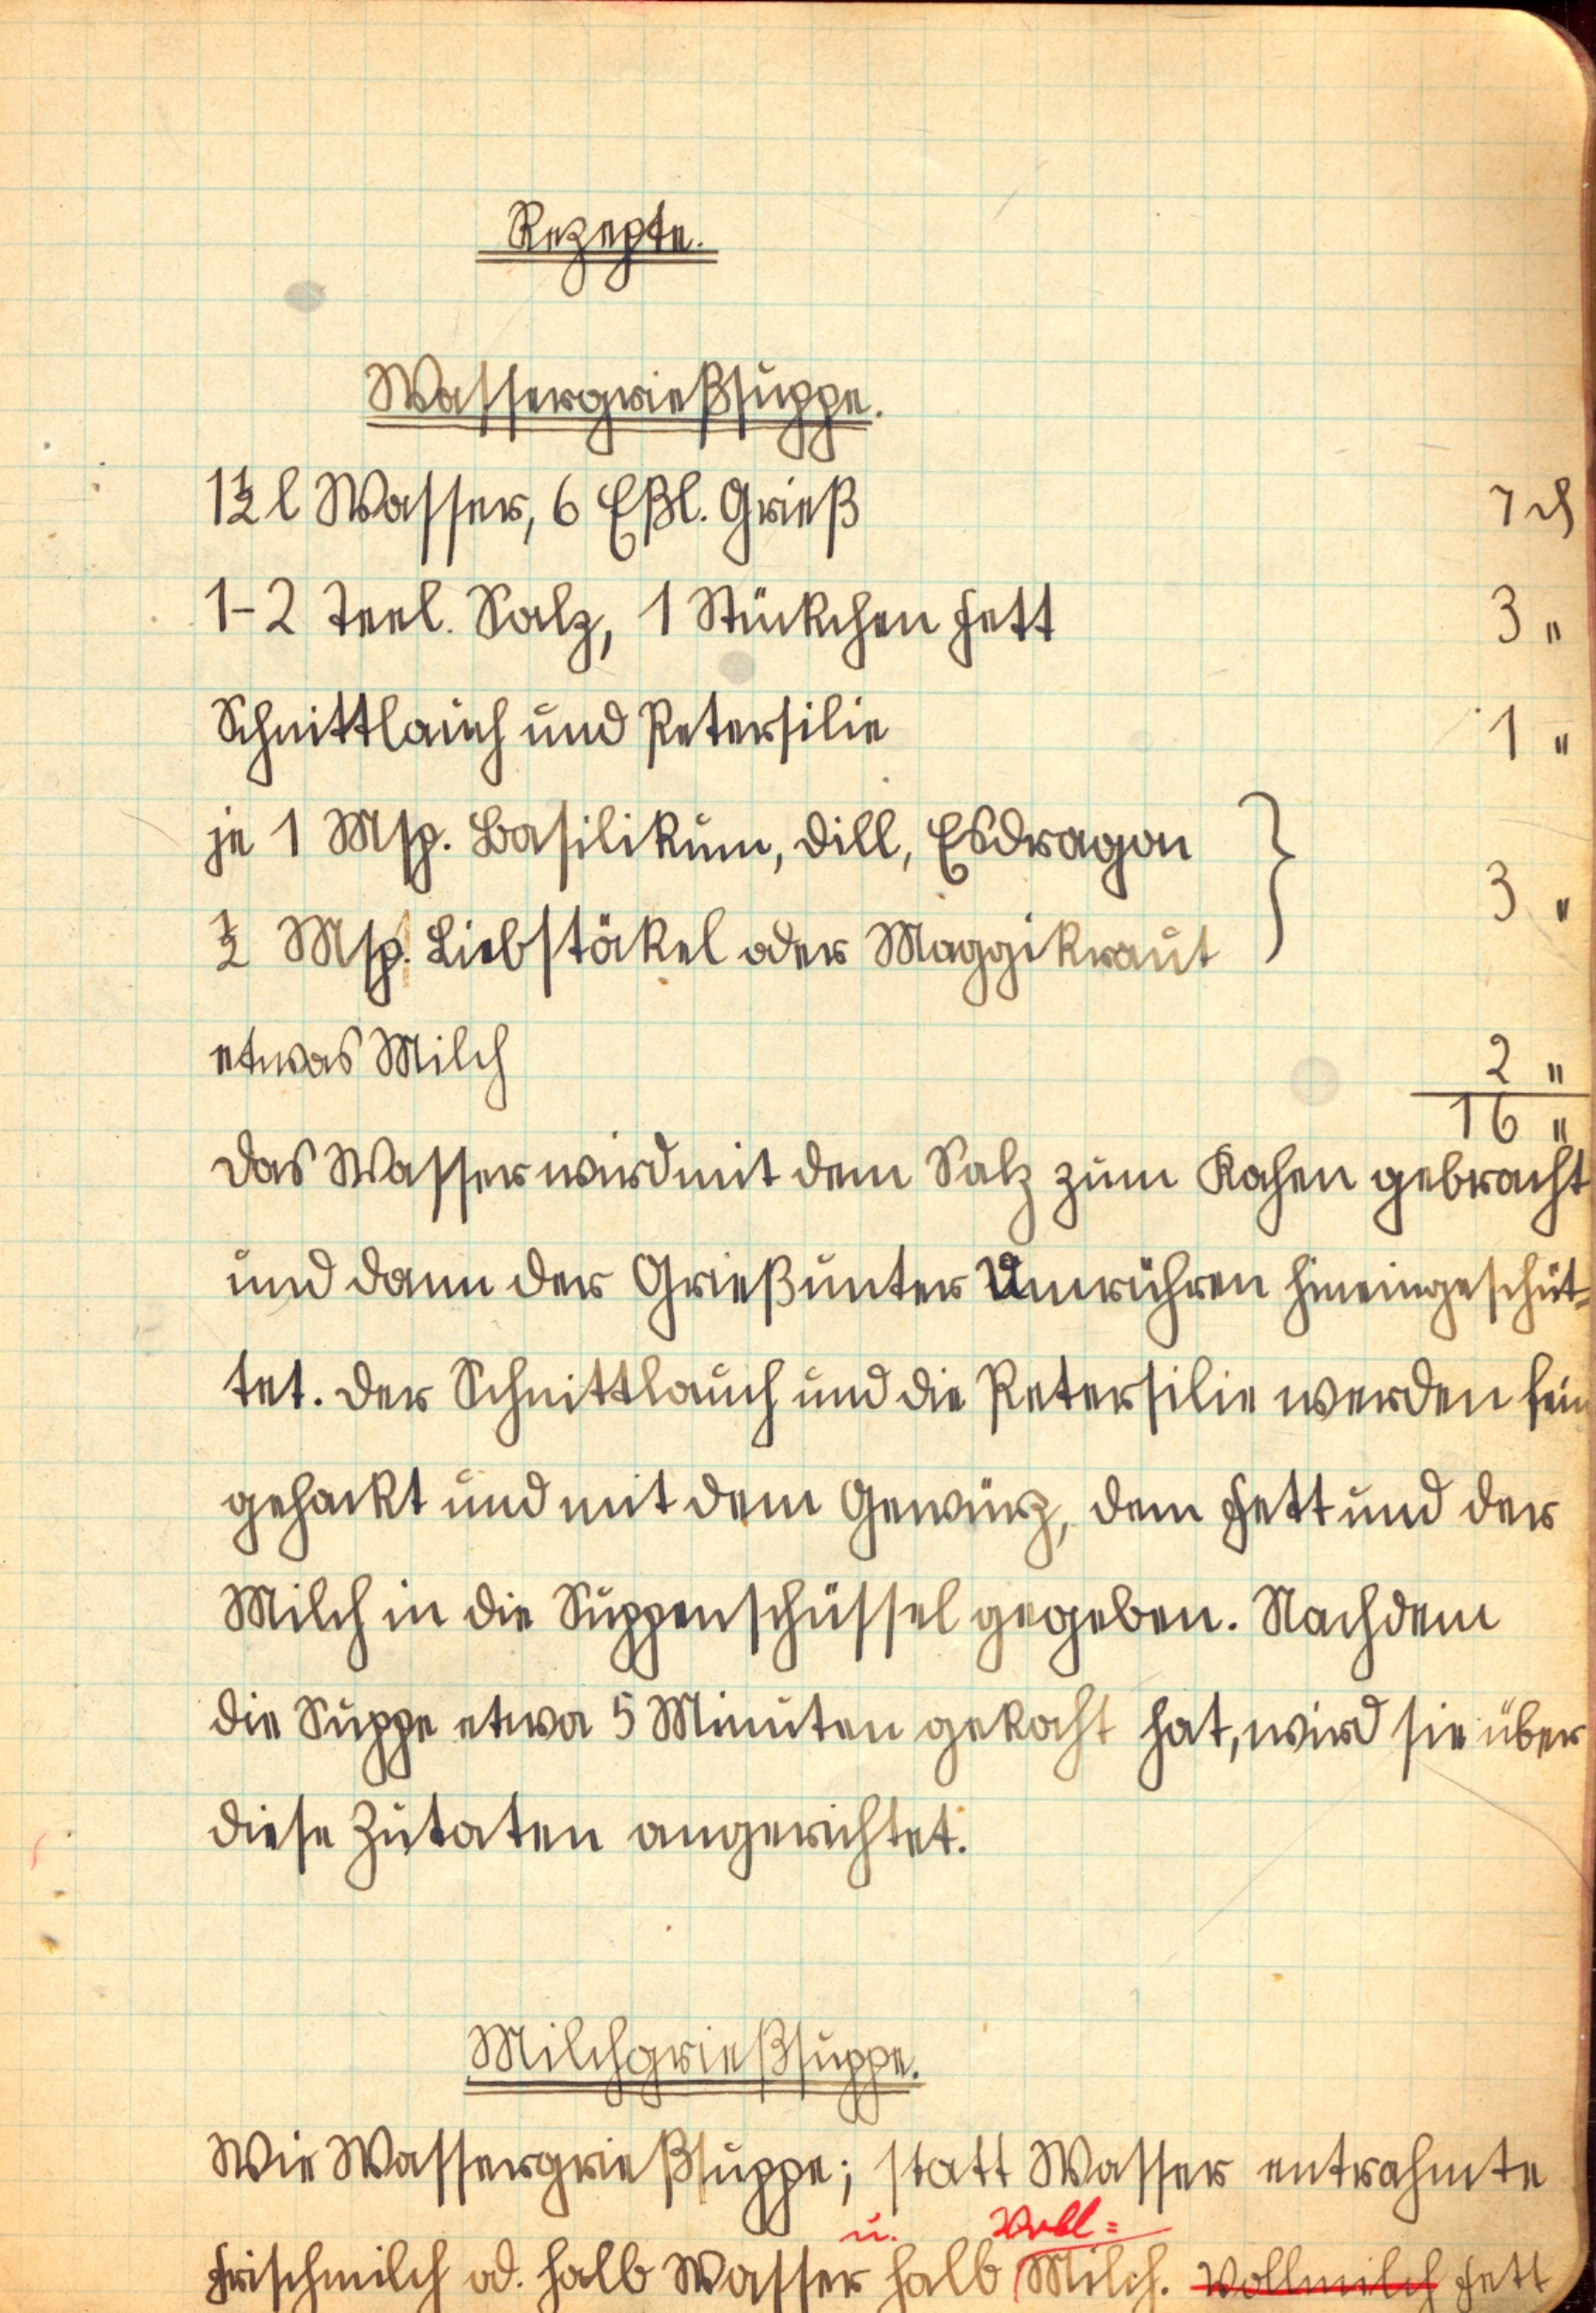 Rezepte.
Wassergrießsuppe.
1½ l Wasser, 6 Eßl. Grieß 7 ₰
1-2 Teel. Salz, 1 Stückchen Fett 3 "
Schnittlauch und Petersilie 1 "
je 1 Msp. Basilikum, Dill, Esdragon }
½ Msp. Liebstökel oder Maggikraut } 3 "
etwas Milch 2 "
16 "
Das Wasser wird mit dem Salz zum Kochen gebracht
und dann der Grieß unter Umrühren hineingeschüt=
tet. Der Schnittlauch und die Petersilie werden fein
gehackt und mit dem Gewürz, dem Fett und der
Milch in die Suppenschüssel gegeben. Nachdem
die Suppe etwa 5 Minuten gekocht hat, wird sie über
diese Zutaten angerichtet.
Milchgrießsuppe.
Wie Wassergrießsuppe; statt Wasser entrahmte
u. Voll=
Frischmilch od. halb Wasser halb Milch. Vollmilch Fett